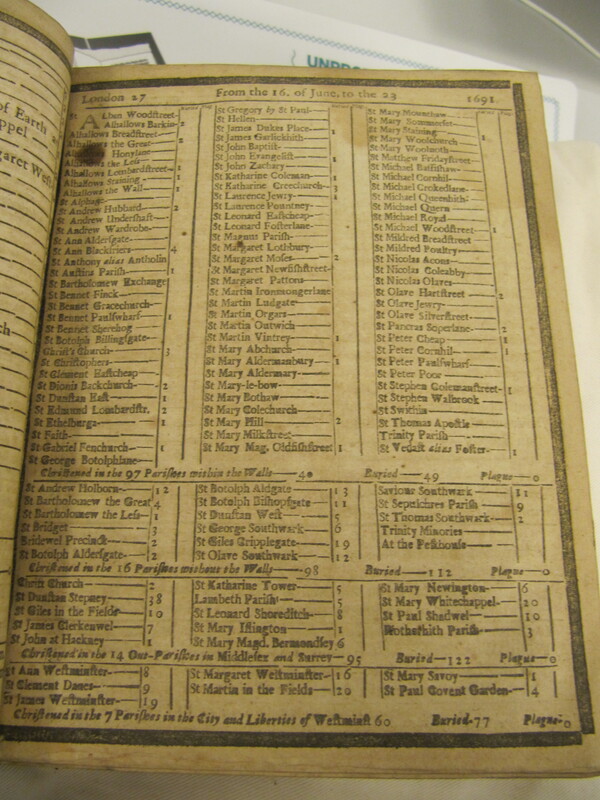 UNPRO
of Earth
appel
garet West
ch
London 27 From the 16. of June, to the 23 1691.
St Alban Woodstreet-
Alhallows Barkin- 2
Alhallows Breadstreet-
Alhallows the Great- 2
Honylane
the Less- 1
Alhallows Lombardstreet- 1
Alhallows Staining- 1
Alhallows the Wall- 1
St Alphage
St Andrew Hubbard- 2
St Andrew Undershaft-
St Andrew Wardrobe-
St Ann Aldersgate-
St Ann Blackfriers 4
St Anthony alias Antholin
St Austins Parish- 1
St Bartholomew Exchange
St Bennet Finck-
St Bennet Gracechurch-
St Bennet Paulswharf- 1
St Bennet Sherehog
St Botolph Billingsgate-
Christ's Church- 3
St Christophers-
St Clement Eastcheap
St Dionis Backchurch- 2
St Dunstan East- 1
St Edmund Lombardstr. 2
St Ethelburga- 1
St Faith-
St Gabriel Fenchurch- 1
St George Botolphlane-
St Gregory by St Paul-
St Hellen-
St James Dukes Place- 1
St James Garlickhith-
St John Baptist-
St John Evangelist- 1
St John Zachary-
St Katharine Coleman- 1
St Katharine Creechurch- 3
St Laurence Jewry- 1
St Laurence Pountney-
St Leonard Eastcheap-
St Leonard Fosterlane-
St Magnus Parish-
St Margaret Lothbury-
St Margaret Moses- 2
St Margaret Newfishstreet-
St Margaret Pattons-
St Martin Ironmongerlane
St Martin Ludgate-
St Martin Orgars-
St Martin Outwich-
St Martin Vintrey- 1
St Mary Abchurch-
St Mary Aldermanbury- 1
St Mary Aldermary-
St Mary-le-bow-
St Mary Bothaw-
St Mary Colechurch-
St Mary Hill- 2
St Mary Milkstreet-
St Mary Mag. Oldfishstreet 1
St Mary Mounthaw-
St Mary Sommerset-
St Mary Staining-
St Mary Woolchurch-
St Mary Woolnoth-
St Matthew Fridaystreet-
St Michael Bassishaw-
St Michael Cornhil-
St Michael Crokedlane-
St Michael Queenhith-
St Michael Quern-
St Michael Royal-
St Michael Woodstreet- 1
St Mildred Breadstreet-
St Mildred Poultry-
St Nicolas Acons-
St Nicolas Coleabby-
St Nicolas Olaves-
St Olave Hartstreet- 2
St Olave Jewry-
St Olave Silverstreet-
St Pancras Soperlane- 2
St Peter Cheap- 1
St Peter Cornhil- 1
St Peter Paulswharf-
St Peter Poor-
St Stephen Colemanstreet- 1
St Stephen Walbrook-
St Swithin-
St Thomas Apostle-
Trinity Parish-
St Vedast alias Foster- 1
Christened in the 97 Parishes within the Walls- 40 Buried- 49 Plague- 0
St Andrew Holborn- 12
St Bartholomew the Great 4
St Bartholomew the Less- 1
St Bridget- 3
Bridewel Precinct- 2
St Botolph Aldersgate- 2
St Botolph Aldgate- 13
St Botolph Bishopsgate- 11
St Dunstan West- 5
St George Southwark- 6
St Giles Cripplegate- 19
St Olave Southwark- 12
Saviour Southwark- 11
St Sepulchres Parish- 9
St Thomas Southwark- 2
Trinity Minories-
At the Pesthouse-
Christened in the 16 Parishes without the Walls- 98 Buried- 112 Plague- 0
Christ Church- 2
St Dunstan Stepney- 38
St Giles in the Fields- 10
St James Clerkenwel- 7
St John at Hackney- 1
St Katharine Tower- 5
Lambeth Parish- 5
St Leonard Shoreditch- 8
St Mary Islington- 1
St Mary Magd. Bermondsey 6
St Mary Newington- 6
St Mary Whitechappel- 20
St Paul Shadwel- 10
Rothethith Parish- 3
Christened in the 14 Out-Parishes in Middlesex and Surrey- 95 Buried- 122 Plague- 0
St Ann Westminster- 8
St Clement Danes- 9
St James Westminster- 19
St Margaret Westminster- 16
St Martin in the Fields- 20
St Mary Savoy- 1
St Paul Covent Garden- 4
Christened in the 7 Parishes in the City and Liberties of Westminst 60 Buried- 77 Plague- 0